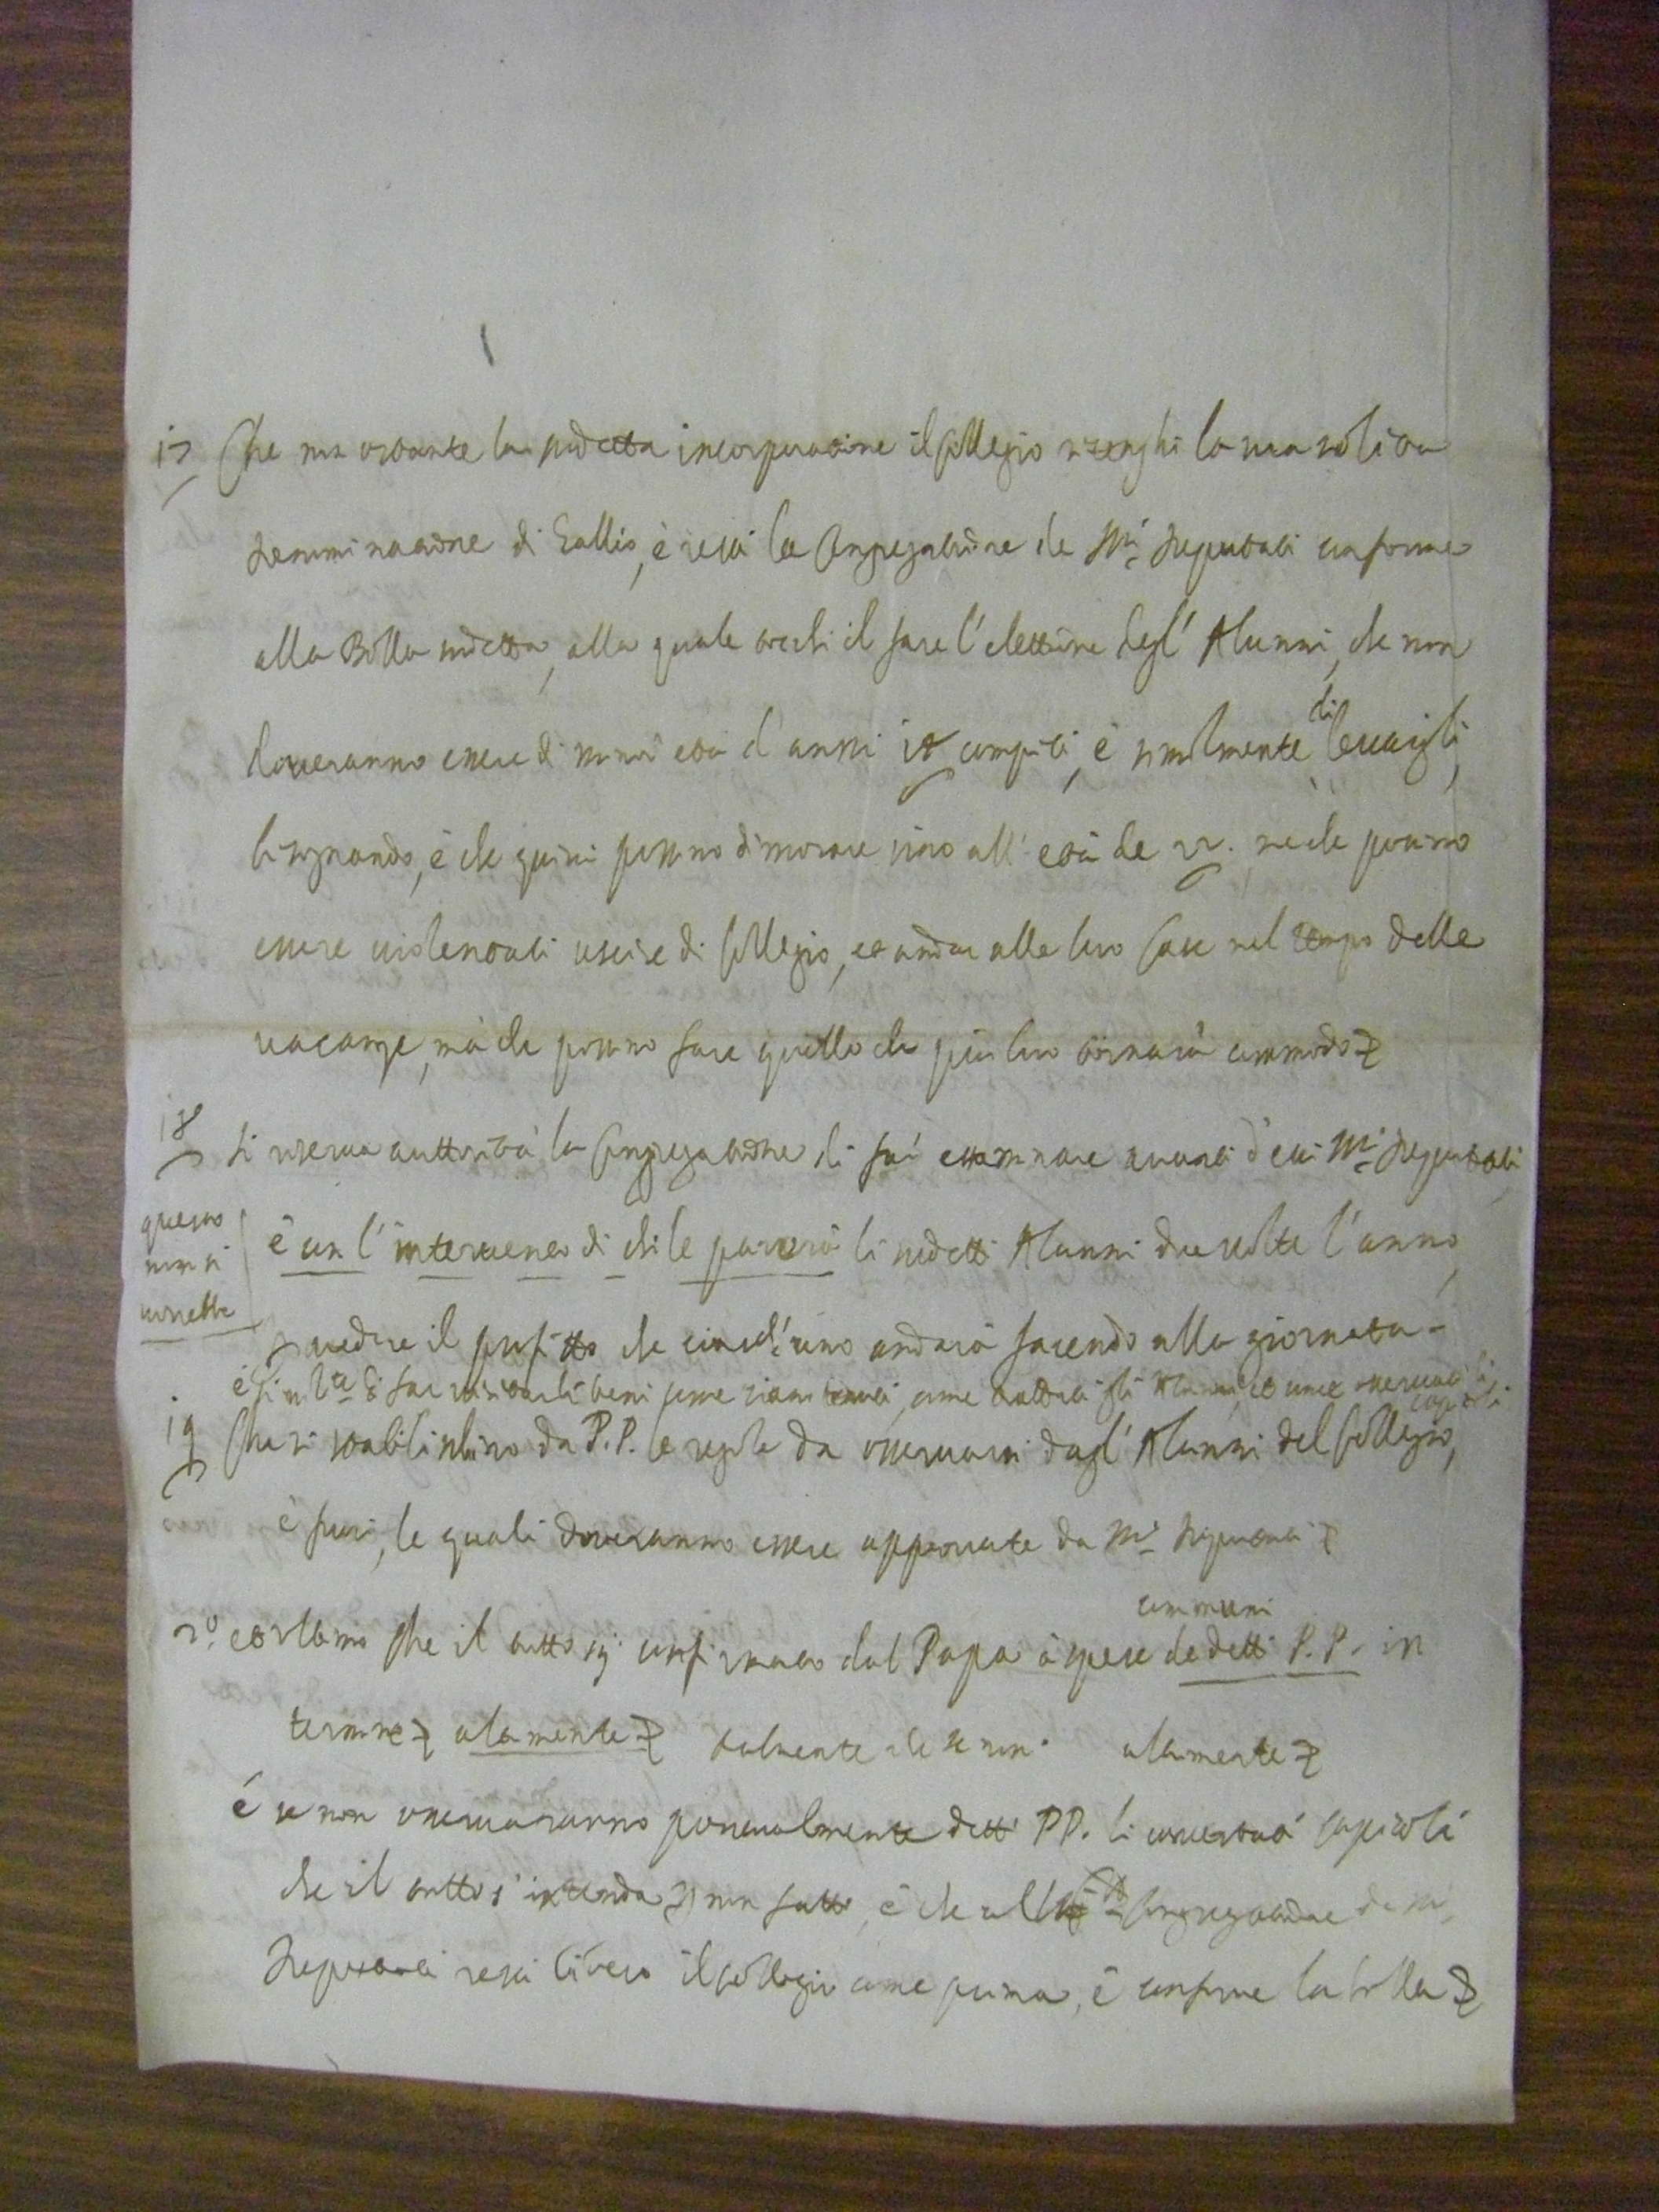 17 Che non ostante la sudetta incorporatione il Collegio ritenghi la sua solita
denominatione di Gallio, è resti la Congregatione de SS.ri Deputati conforme
alla Bolla sudetta, alla quale tochi il fare l'elettione degl'Alunni, che non
doveranno essere di minor età d'anni 12 compiti, è similmente di levargli,
bisognando, è che quivi possino dimorare sino all'età de 22. ne che possino
essere violentati uscire di Collegio, et andar alle loro Case nel tempo delle
vacanze, mà che possino fare quello che più loro tornarà commodo
18 Si riserva auttorità la Congregatione di far essaminare avanti d'essi SS.ri Deputati
è con l'intervento di chi le parerà li sudetti Alunni due volte l'anno,
questo
non si
vedere il profitto che ciasch.uno andarà facendo alla giornata
è simil.te di far visitar li beni come siano tenuti, come trattati gli Alunni, et come osservati li
capitoli
19 Che si stabilischino da P.P. le regole da osservarsi dagl'Alunni del Collegio,
è fuori, le quali doveranno essere approvate da SS.ri Deputati
communi
20. et ultimo Che il tutto sij confirmato dal Papa à spese de detti P.P. in
termine altamente talmente che se non altamente
è se non osservaranno pontualmente detti PP. li concertati Capitoli
che il tutto s'intenda p non fatto, è che alla Congregatione de SS.ri
Deputati resti libero il Collegio come prima, è conforme la bolla